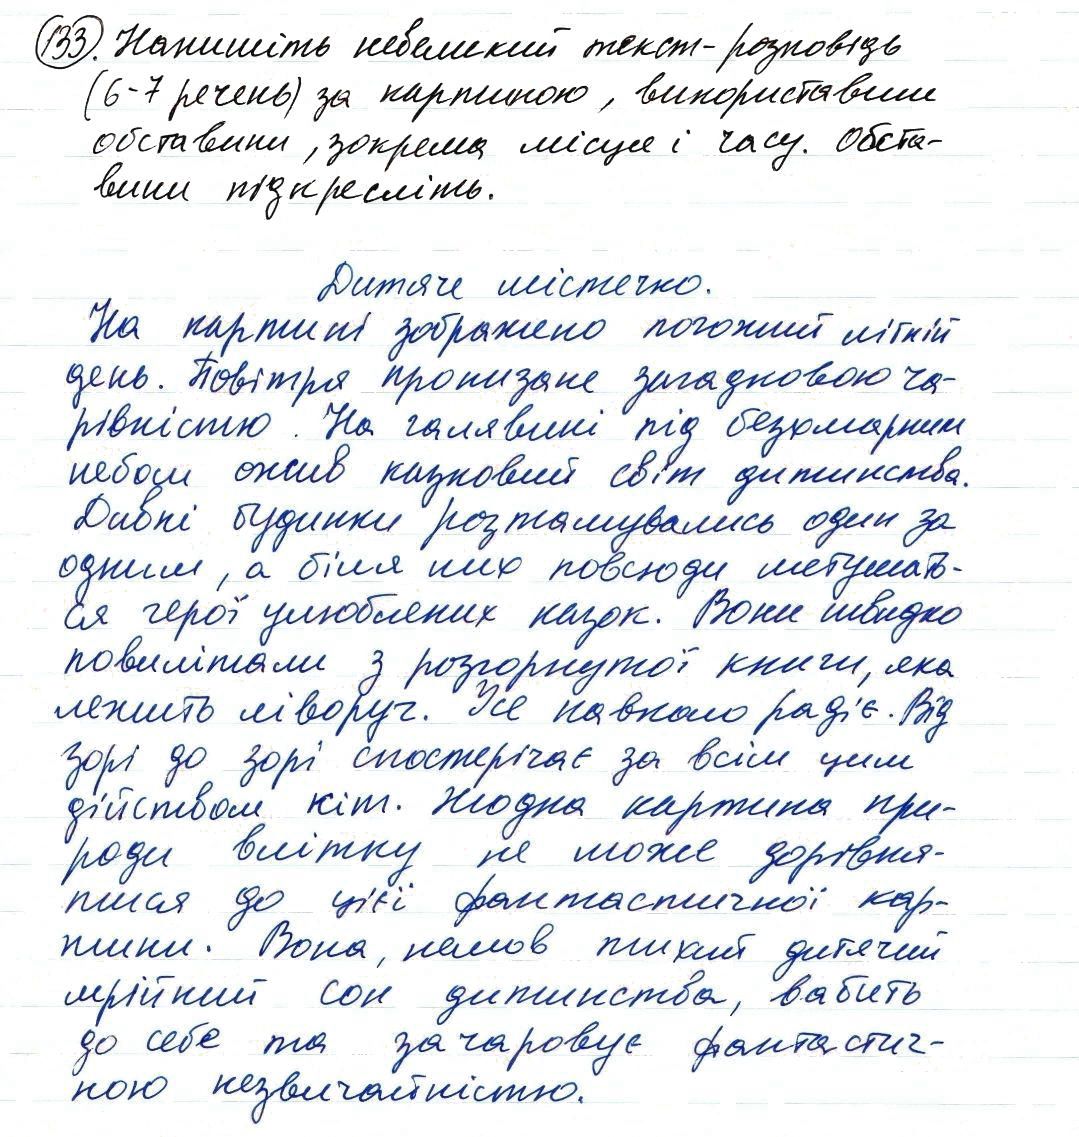 133. Напишіть невеликий текст-розповідь
(6-7 речень) за картиною, використавши
обставини, зокрема місця і часу. Обста-
вини підкресліть.
Дитяче містечко.
На картині зображено погожий літній
день. Повітря пронизане загадковою ча-
рівністю. На галявині під безхмарним
небом ожив казковий світ дитинства.
Дивні будинки розташувались один за
одним, а біля них повсюди метушать-
ся герої улюблених казок. Вони швидко
повилітали з розгорнутої книги, яка
лежить ліворуч. Усе навколо радіє. Від
зорі до зорі спостерігає за всім цим
дійством кіт. Жодна картина при-
роди влітку не може дорівня-
тися до цієї фантастичної кар-
тини. Вона, немов тихий дитячий
мрійний сон дитинства, вабить
до себе та зачаровує фантастич-
ною незвичайністю.